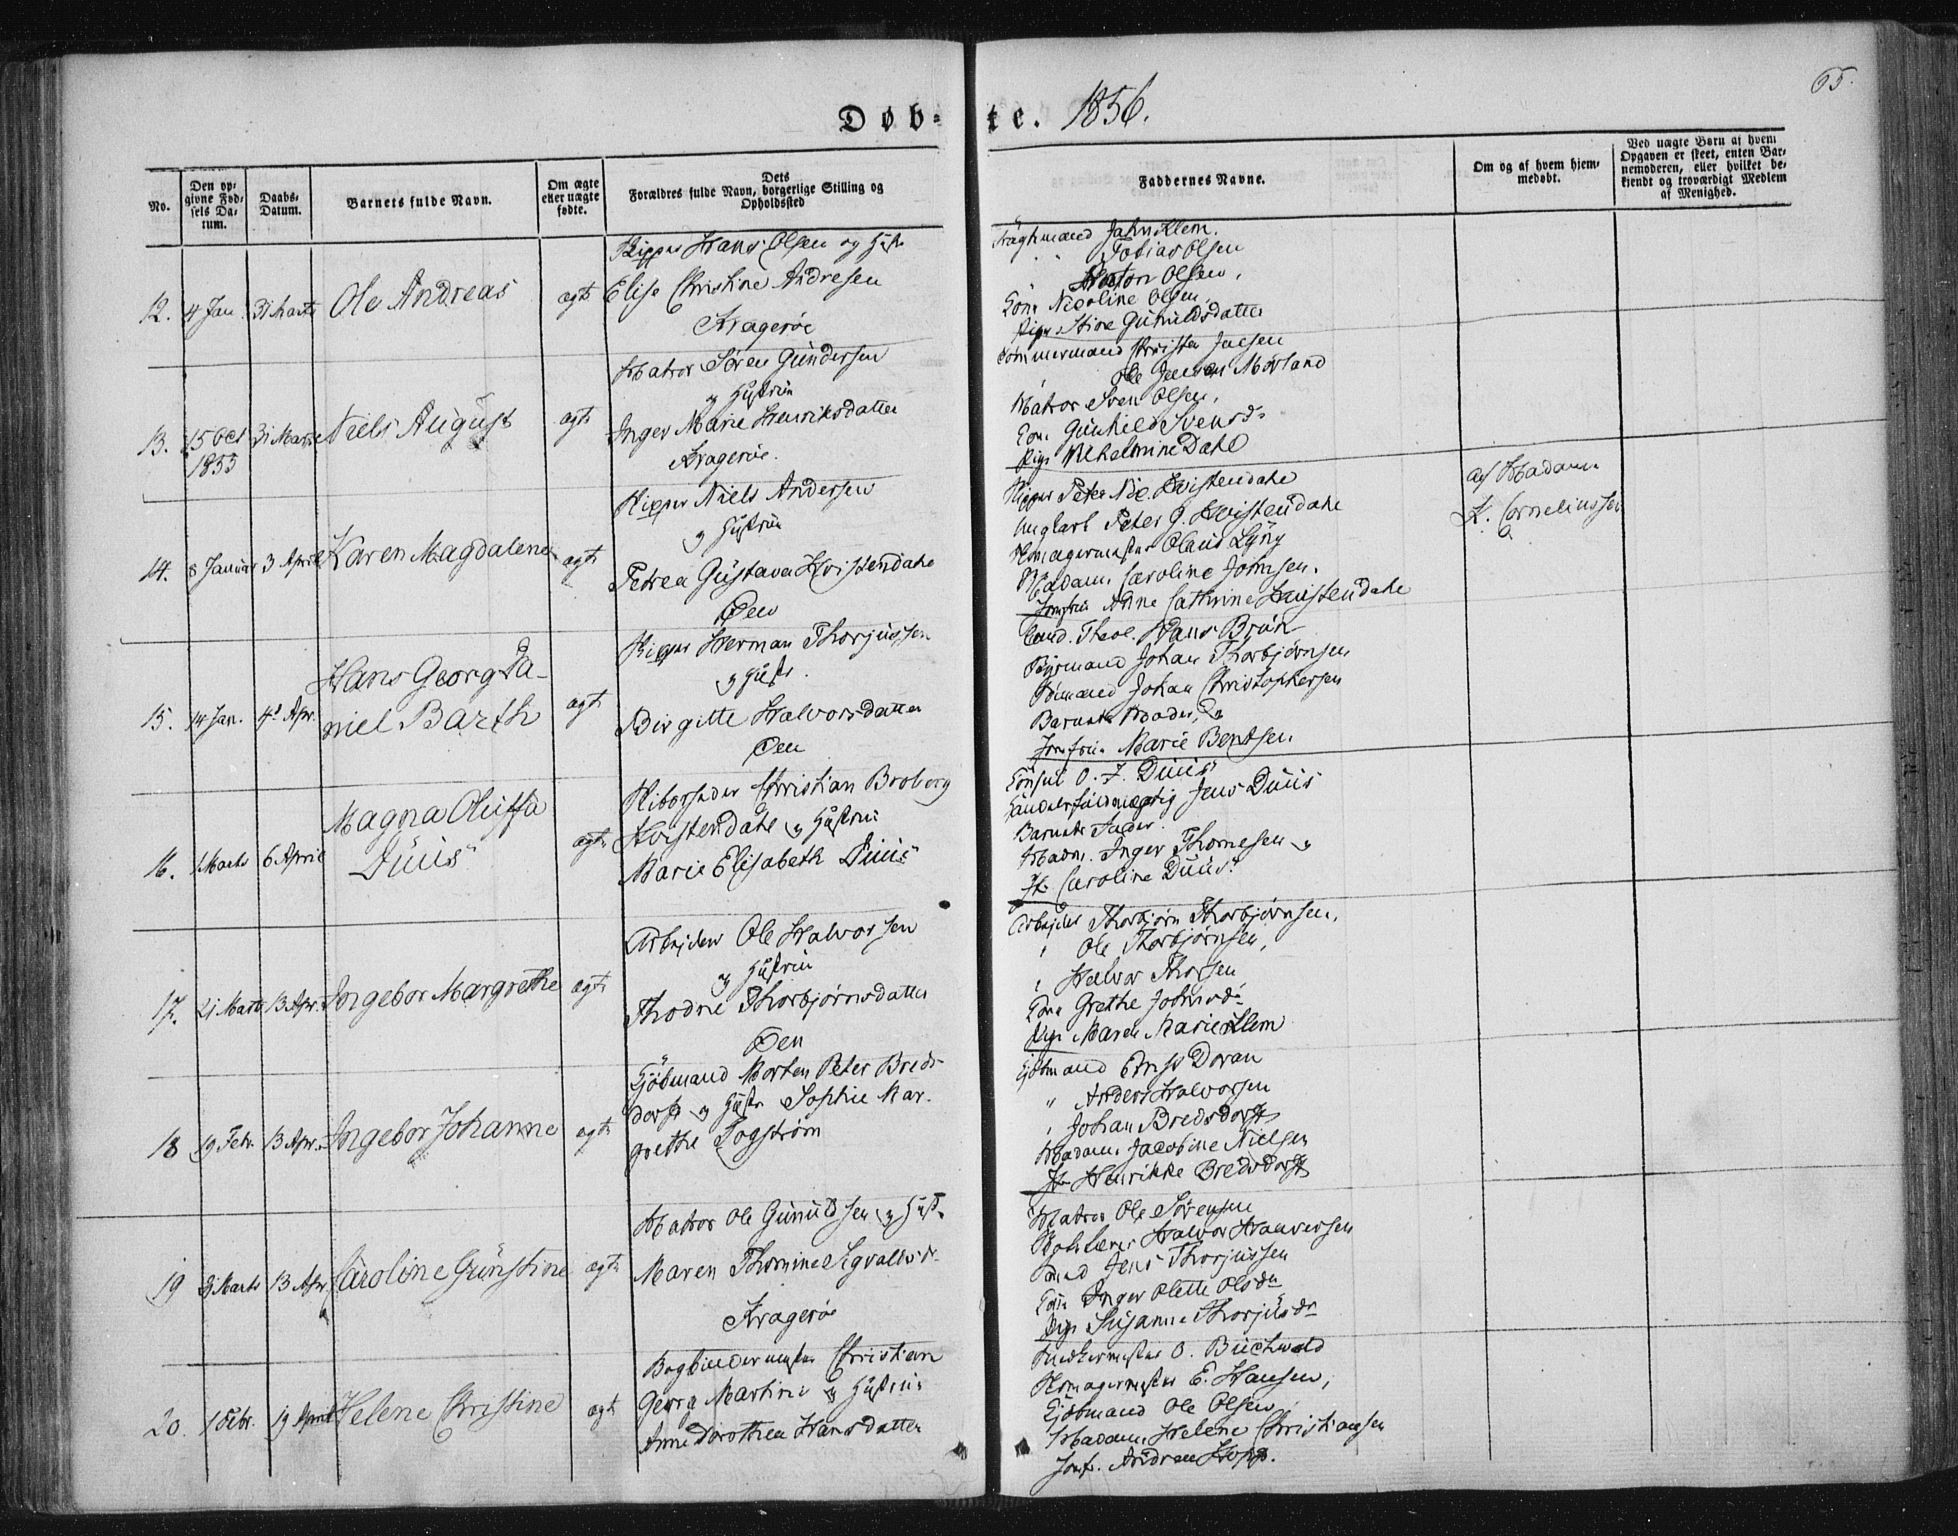 65.
Døb- te. 1856.
No.
Den op-
givne Fød-
sels Da-
tum.
Daabs-
Datum.
Barnets fulde Navn.
Om ægte
eller uægte
fødte.
Dets
Forældres fulde Navn, borgerlige Stilling og
Opholdssted
Faddernes Navne.
Om og af hvem hjem-
medøbt.
Ved uægte Børn af hvem
Opgaven er skeet, enten Bar-
nemoderen, eller hvilket be-
kjendt og troværdigt Medlem
af Menighed.
12. 4 Jan. 31 Marts Ole Andreas ægte
Skipper Hans Olsen og Hust.
Elise Christine Andresen
Kragerøe
John Klem.
Tobias Olsen
Olsen,
Kone Nicoline Olsen,
Pige Stine Gunuldsdatter
13. 15 Oct 1855 31 Marts Niels August ægte
Matros Søren Gundersen
og Hustrue
Inger Marie Henriksdatter
Kragerøe.
Tømmermand Christen Jacsen
Ole Jensen Mørland
Matros Sven Olsen,
Kone Gunhild Svensd.
Pige Vilhelmine Dahl
14. 8 Januar 3 April Karen Magdalene ægte
Skipper Niels Andersen
og Hustrue
Petrea Gustava Hvistendahl
Øen
Skipper Peter Nic. Hvistendahl
Ungkarl Peter G. Hvistendahl
Skomagermester Claus Lyng
Madam Caroline Johnsen.
Jomfrue Anne Cathrine Hvistendahl
af Madam
K. Corneliussen
15. 14 Jan. 4de Apr. Hans Georg Da-
niel Barth ægte
Skipper Herman Thorjussen
og Hustr.
Birgitte Halvorsdatter
Øen
Cand. Theol. Hans Bruun
Styrmand Johan Thorbjørnsen
Sømand Johan Christophersen
Barnets Moder,
Jomfrue Marie Bentsen.
16. 1 Marts 6 April Magna Oluffa
Duus ægte
Skibsreder Christian Broberg
Hvistendahl og Hustrue
Marie Elisabeth Duus
Consul O. J. Duus
Handelsfuldmægtig Jens Duus
Barnets Fader.
Madm. Inger Thomesen og
Jfr. Caroline Duus.
17. 21 Marts 13 Apr. Ingebor Margrethe ægte
Arbejder Ole Halvorsen
og Hustrue
Thodne Thorbjørnsdatter
Øen
Arbejder Thorbjørn Thorbjørnsen,
Ole Thorbjørnsen,
Halvor Thorsen
Kone Grethe Johnsd.
Pige Maren Marie Klem
18 19 Febr. 13 Apr. Ingebor Johanne ægte
Kjøbmand Morten Peter Breds-
dorff og Hustr. Sophie Mar-
grethe Fogstrøm
Kjøbmand Ernst Doran
" Anders Halvorsen
" Johan Bredsdorff
Madam Jacobine Nielsen
Jfr. Henrikke Bredsdorff
19 3 Marts 13 Apr. Caroline Gunstine ægte
Matros Ole Gunuldsen og Hust.
Maren Thomine Sigvaldsd.
Kragerøe
Matros Ole Sørensen
Halvor Halvorsen
Jens Thorjussen
Kone Inger Olette Olsdn
Pige Susanne Thorjusdr
20. 1 Febr. 19 April Helene Christine ægte
Bogbindermester Christian
Georg Martini og Hustrue
Anne Dorothea Hansdatter
Snedkermester O. Buchwald
Skomagermester E. Hansen,
Kjøbmand Ole Olsen
Madam Helene Christiansen
Jomf. Andrea Hopp.